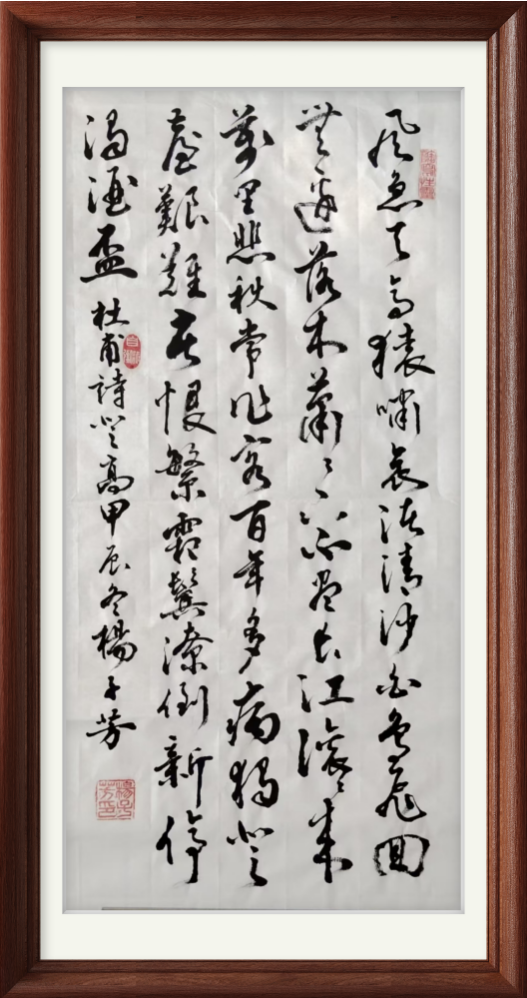 風急天高猿嘯哀渚清沙白鳥飛回
無邊落木蕭〻下不盡長江滾〻來
萬里悲秋常作客百年多病獨登
臺艱難苦恨繁霜鬢潦倒新停
濁酒盃 杜甫詩登高甲辰冬楊子芳